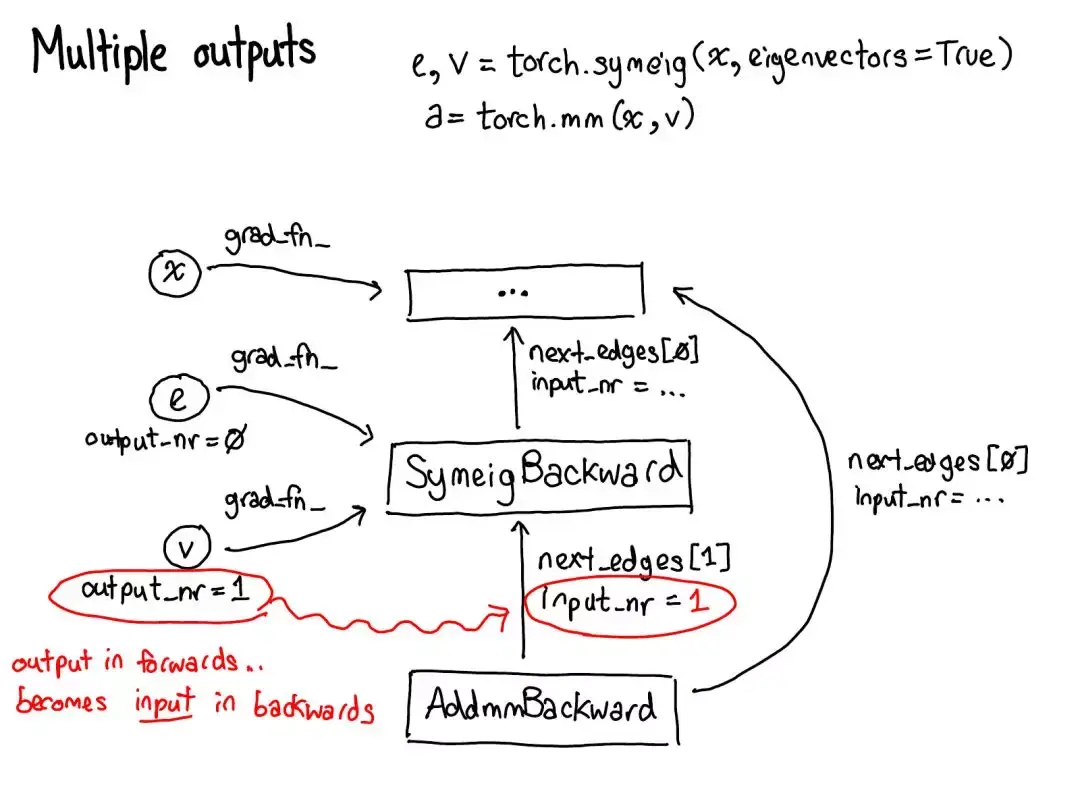 Multiple outputs
e, v = torch.symeig(x, eigenvectors=True)
a = torch.mm(x, v)
grad_fn_
x
...
grad_fn_
next_edges[0]
input_nr = ...
e
output_nr = 0
SymeigBackward
next_edges[0]
input_nr = ...
grad_fn_
v
output_nr = 1
next_edges[1]
input_nr = 1
output in forwards..
becomes input in backwards
AddmmBackward